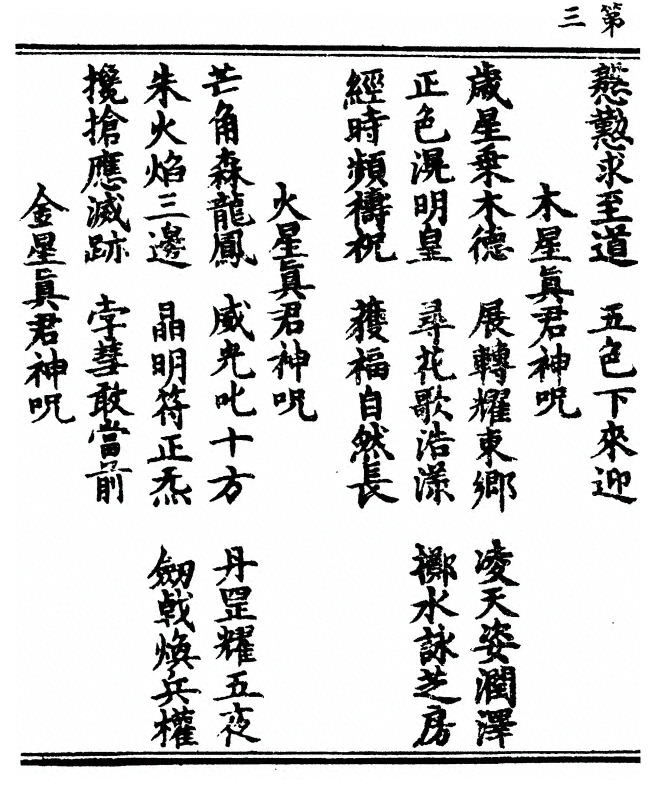 第三
慇懃求至道　五色下來迎
木星眞君神呪
歲星乗木德　展轉耀東鄉　凌天姿潤澤
正色滉明皇　尋花歌浩漾　擲水詠芝房
經時頻禱祝　獲福自然長
火星眞君神呪
芒角森龍鳳　威光叱十方　丹罡耀五夜
朱火焰三邊　晶明符正炁　劒戟煥兵權
攙搶應滅跡　孛彗敢當前
金星眞君神呪